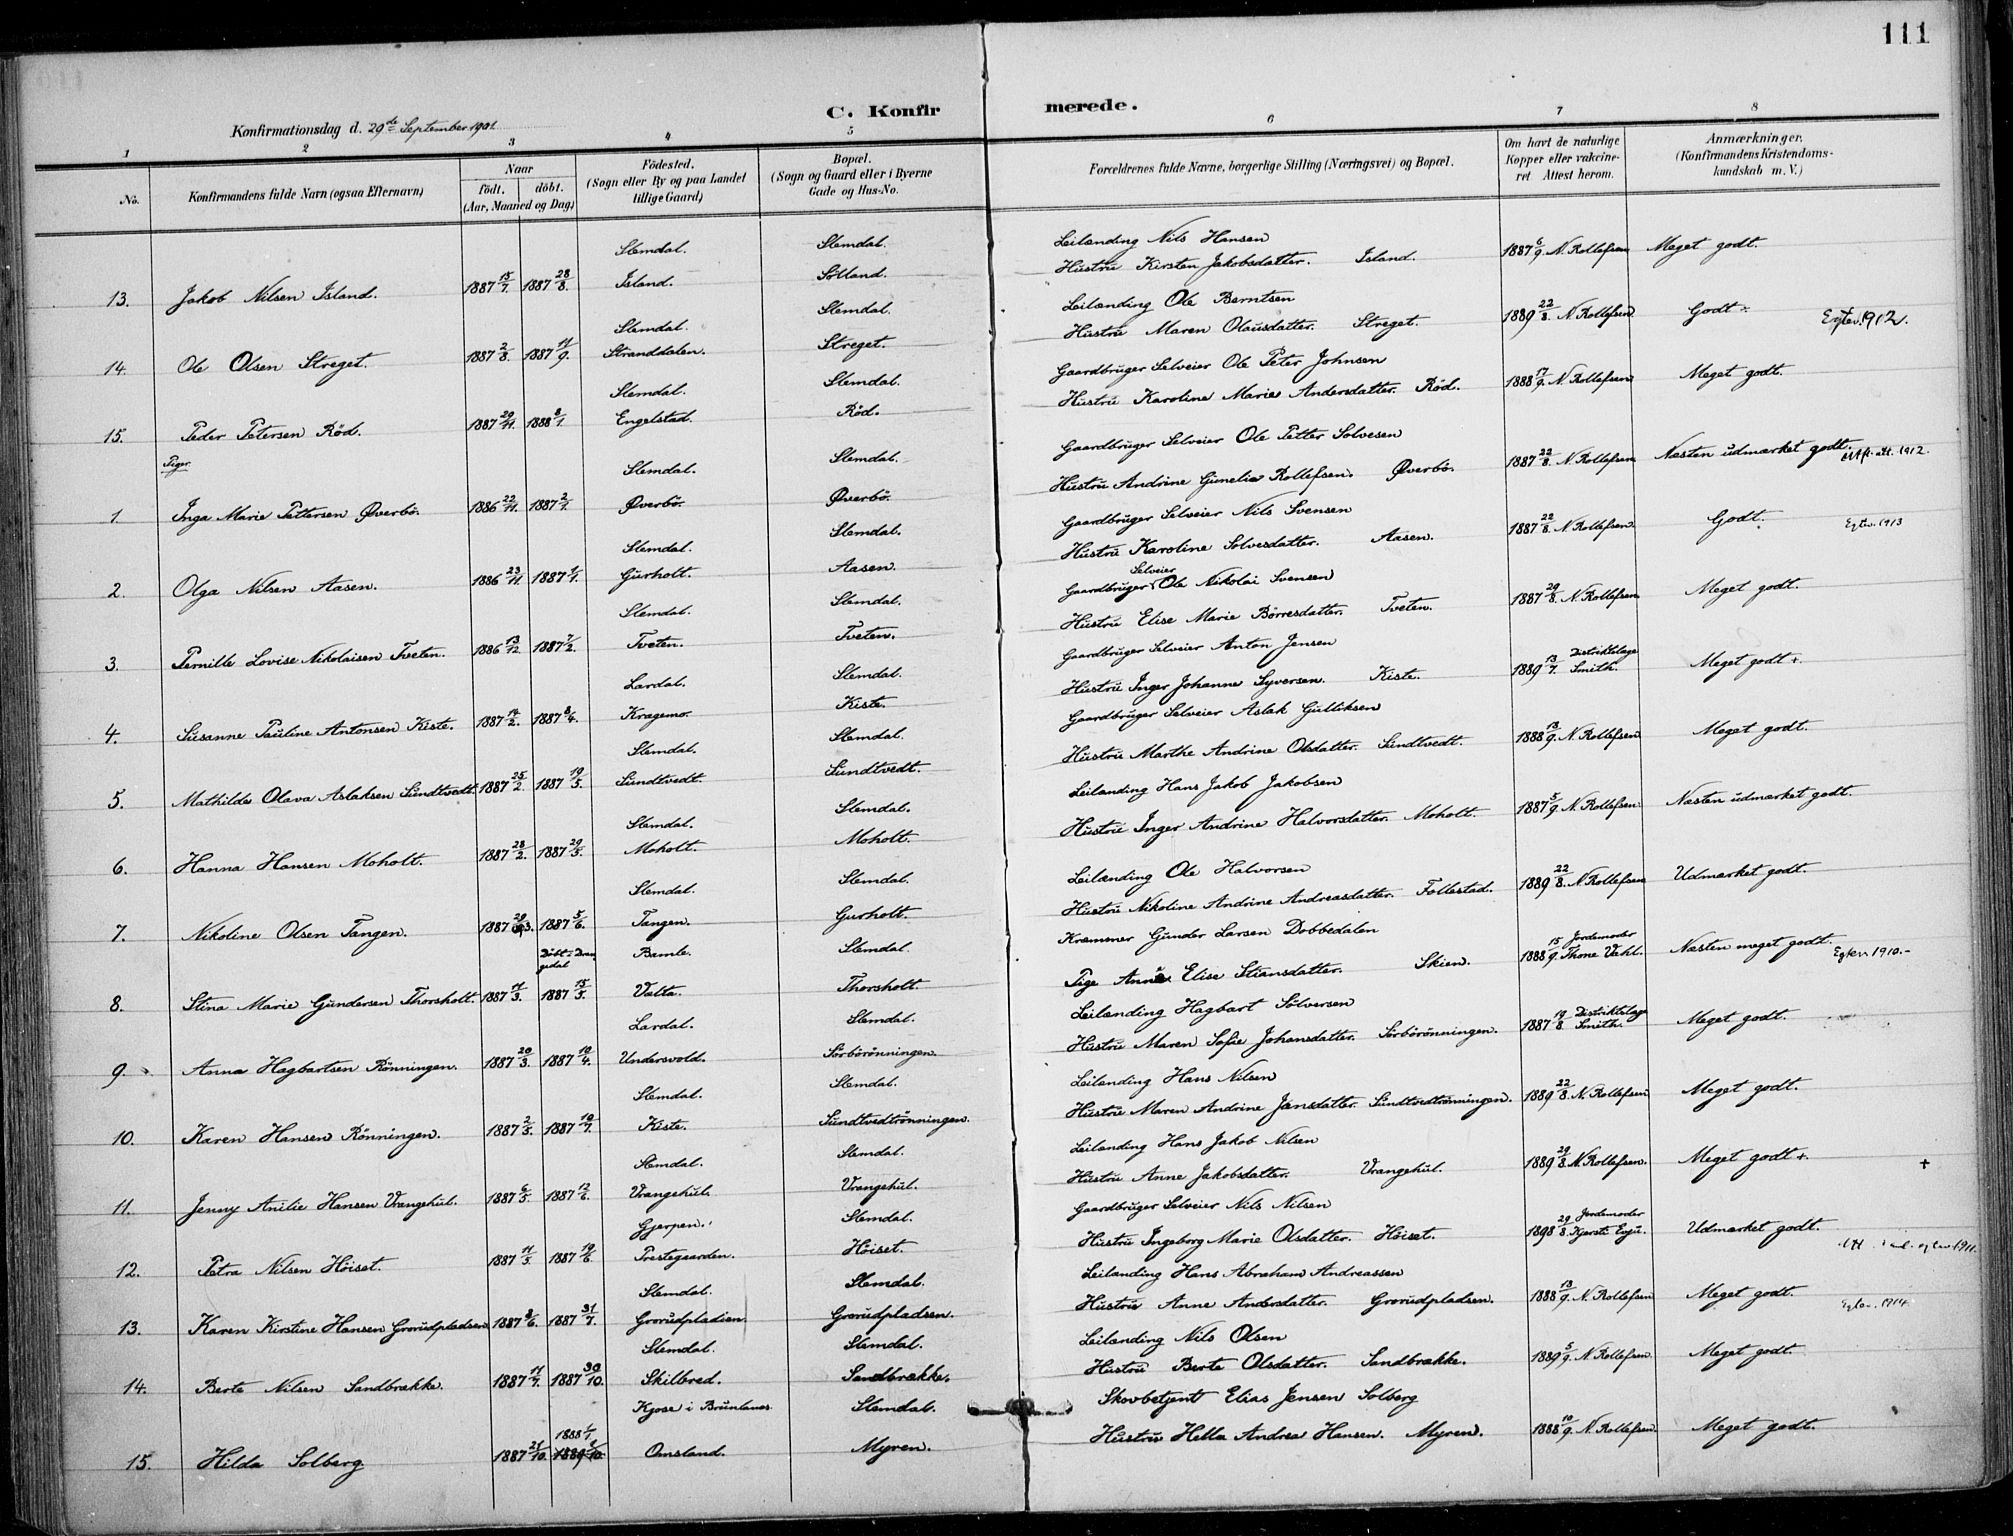 111
C. Konfirmerede.
Konfirmationsdag d. 29de September 1901.
1 2 3 4 5 6 7 8
No. Konfirmandens fulde Navn (ogsaa Efternavn) Naar födt. döbt. (Aar, Maaned og Dag) Födested. (Sogn eller By og paa Landet tillige Gaard) Bopæl. (Sogn og Gaard eller i Byerne Gade og Hus-No. Forældrenes fulde Navne, borgerlige Stilling (Næringsvei) og Bopæl. Om havt de naturlige Kopper eller vaccineret Attest herom. Anmærkninger. (Konfirmandens Kristendomskundskab m.V.)
Slemdal. Slemdal. Leilænding Nils Hansen
13. Jakob Nilsen Island. 1887 15/7. 1887 28/8. Island. Solland. Hustru Kirsten Jakobsdatter. Island. 1887 6/9. N. Rollefsen Meget godt.
Slemdal. Slemdal. Leilænding Ole Berntsen
14. Ole Olsen Streget. 1887 2/8. 1887 11/9. Stranddalen. Streget. Hustru Maren Olausdatter. Streget. 1889 22/8. N. Rollefsen Godt ÷ Egtev. 1912.
Slemdal. Slemdal. Gaardbruger Selveier Ole Peter Johnsen
15. Peder Petersen Röd. 1887 20/11. 1888 8/1. Engelstad. Röd. Hustru Karoline Marie Andersdatter. Röd. 1888 17/9. N. Rollefsen Meget godt.
Piger
Slemdal. Slemdal. Gaardbruger Selveier Ole Petter Solvesen
1. Inga Marie Pettersen Øverbö. 1886 22/11. 1887 2/1. Øverbö. Øverbö. Hustru Andrine Gunelia Rollefsen. Øverbö. 1887 22/8. N. Rollefsen Næsten udmærket godt. att. 1912.
Slemdal. Slemdal. Gaardbruger Selveier Nils Svensen
2. Olga Nilsen Aasen. 1886 23/11. 1887 1/1. Gurholt. Aasen. Hustru Karoline Solvesdatter. Aasen. 1887 22/8. N. Rollefsen. Godt. Egtev. 1913
Slemdal. Slemdal. Gaardbruger Selveier Ole Nikolai Svensen
3. Pernille Lovise Nikolaisen Tveten. 1886 13/12. 1887 7/2. Tveten. Tveten. Hustru Elise Marie Börresdatter. Tveten. 1887 29/8. N. Rollefsen Meget godt.
Lardal. Slemdal. Gaardbruger Selveier Anton Jensen
4. Susanne Pauline Antonsen Kiste. 1887 14/2. 1887 8/4. Kragemo. Kiste. Hustru Inger Johanne Syversen. Kiste. 1889 13/7. Distriktslæge Smith. Meget godt +
Slemdal. Slemdal. Gaardbruger Selveier Aslak Gulliksen
5. Mathilde Olava Aslaksen Sundtvedt. 1887 25/2. 1887 19/5. Sundtvedt. Sundtvedt. Hustru Marthe Andrine Olsdatter. Sundtvedt. 1888 13/9. N. Rollefsen Meget godt.
Slemdal. Slemdal. Leilænding Hans Jakob Jakobsen
6. Hanna Hansen Moholt. 1887 28/2. 1887 29/5. Moholt. Moholt. Hustru Inger Andrine Halvorsdatter. Moholt. 1887 5/9. N. Rollefsen. Næsten udmærket godt.
Slemdal. Slemdal. Leilænding Ole Halvorsen
7. Nikoline Olsen Tangen. 1887 29/3. 1887 5/6. Tangen. Gurholt. Hustru Nikoline Andrine Andreasdatter. Follestad. 1889 22/8. N. Rollefsen Udmærket godt.
Döbt i Drangedal Bamle. Slemdal. Kræmmer Gunder Larsen Dobbedalen
8. Stina Marie Gundersen Thorsholt. 1887 11/3. 1887 15/5. Valta. Thorsholt. Pige Anna Elise Stiansdatter. Skien. 1888 15/9. Jordemoder Thone Vahl. Næsten meget godt. Egtev 1910.
Lardal. Slemdal. Leilænding Hagbart Sölversen
9. Anna Hagbartsen Rönningen. 1887 20/3. 1887 10/4. Undersvold. Sörbörönningen. Hustru Maren Sofie Johansdatter. Sörbörönningen. 1887 19/8. Distriktslæge Smith. Meget godt.
Slemdal. Slemdal. Leilænding Hans Nilsen
10. Karen Hansen Rönningen. 1887 2/5. 1887 10/7. Kiste. Sundtvedtrönningen. Hustru Maren Andrine Jansdatter. Sundtvedtrönningen. 1889 22/8. N. Rollefsen Meget godt.
Slemdal. Slemdal. Leilænding Hans Jakob Nilsen
11. Jenny Anilie Hansen Vrangehul. 1887 6/5. 1887 12/6. Vrangehul. Vrangehul. Hustru Anne Jakobsdatter. Vrangehul. 1889 29/8. N. Rollefsen. Meget godt +. +
Gjerpen. Slemdal. Gaardbruger Selveier Nils Nilsen
12. Petra Nilsen Höiset. 1887 11/5. 1887 19/6. Prestegaarden. Höiset. Hustru Ingeborg Marie Olsdatter. Höiset. 1898 29/8. Jordemoder Kjersti Eyju. Udmærket godt. 1911.
Slemdal. Slemdal. Leilænding Hans Abraham Andreassen
13. Karen Kirstine Hansen Grorudpladsen 1887 8/6. 1887 31/7. Grorudpladsen. Grorudpladsen. Hustru Anne Andersdatter. Grorudpladsen. 1888 13/9. N. Rollefsen Meget godt. Egtev. 1914.
Slemdal. Slemdal. Leilænding Nils Olsen
14. Berte Nilsen Sandbrække. 1887 11/7. 1887 30/10. Skilbred. Sandbrække. Hustru Berte Olsdatter. Sandbrække. 1889 5/9. N. Rollefsen. Meget godt.
Kjose i Brunlanes Slemdal. Skovbetjent Elias Jensen Solberg
15. Hilda Solberg. 1887 21/10. 1888 1/1. Omsland. Myren. Hustru Hella Andrea Hansen. Myren. 1888 10/9. N. Rollefsen. Meget godt.